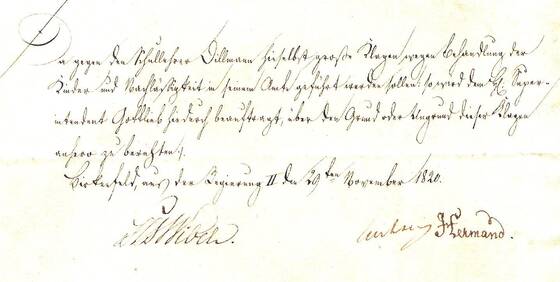 Da gegen den Schullehrer Dillmann hieselbst große Klagen wegen Behandlung der
Kinder und Nachlässigkeit in seinem Amte geführt werden sollen; so wird dem H. Super-
intendent Gottlieb hiedurch beauftragt, über den Grund oder Ungrund dieser Klagen
anhero zu berichten.
Birkenfeld, aus der Regierung II den 29ten November 1820.
Hermand.